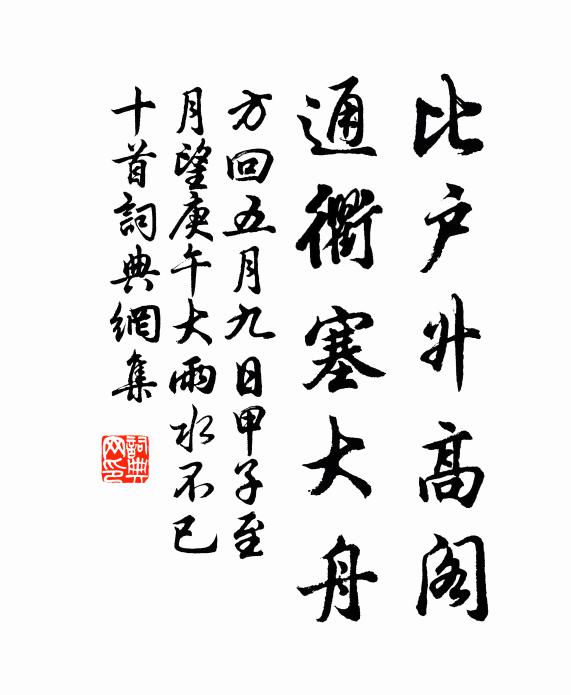 比戶升高阁
通衢塞大舟
方回五月九日甲子至
月望庚午大雨水不已
十首詞典網集
詞典网印